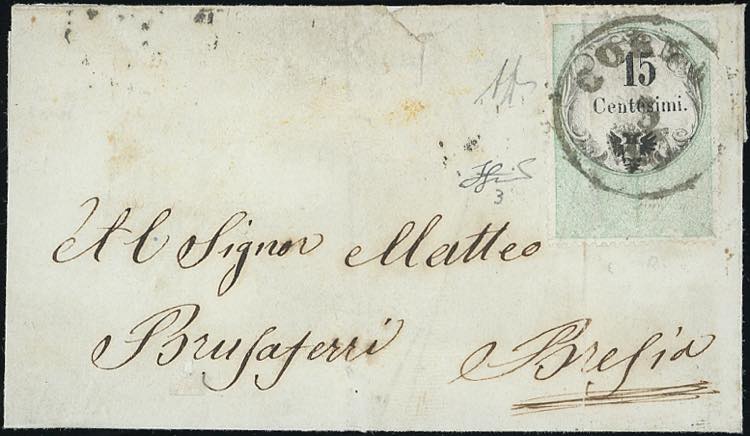 15
Centesimi.
3
Al Signor Matteo
Brusaferri
Brescia